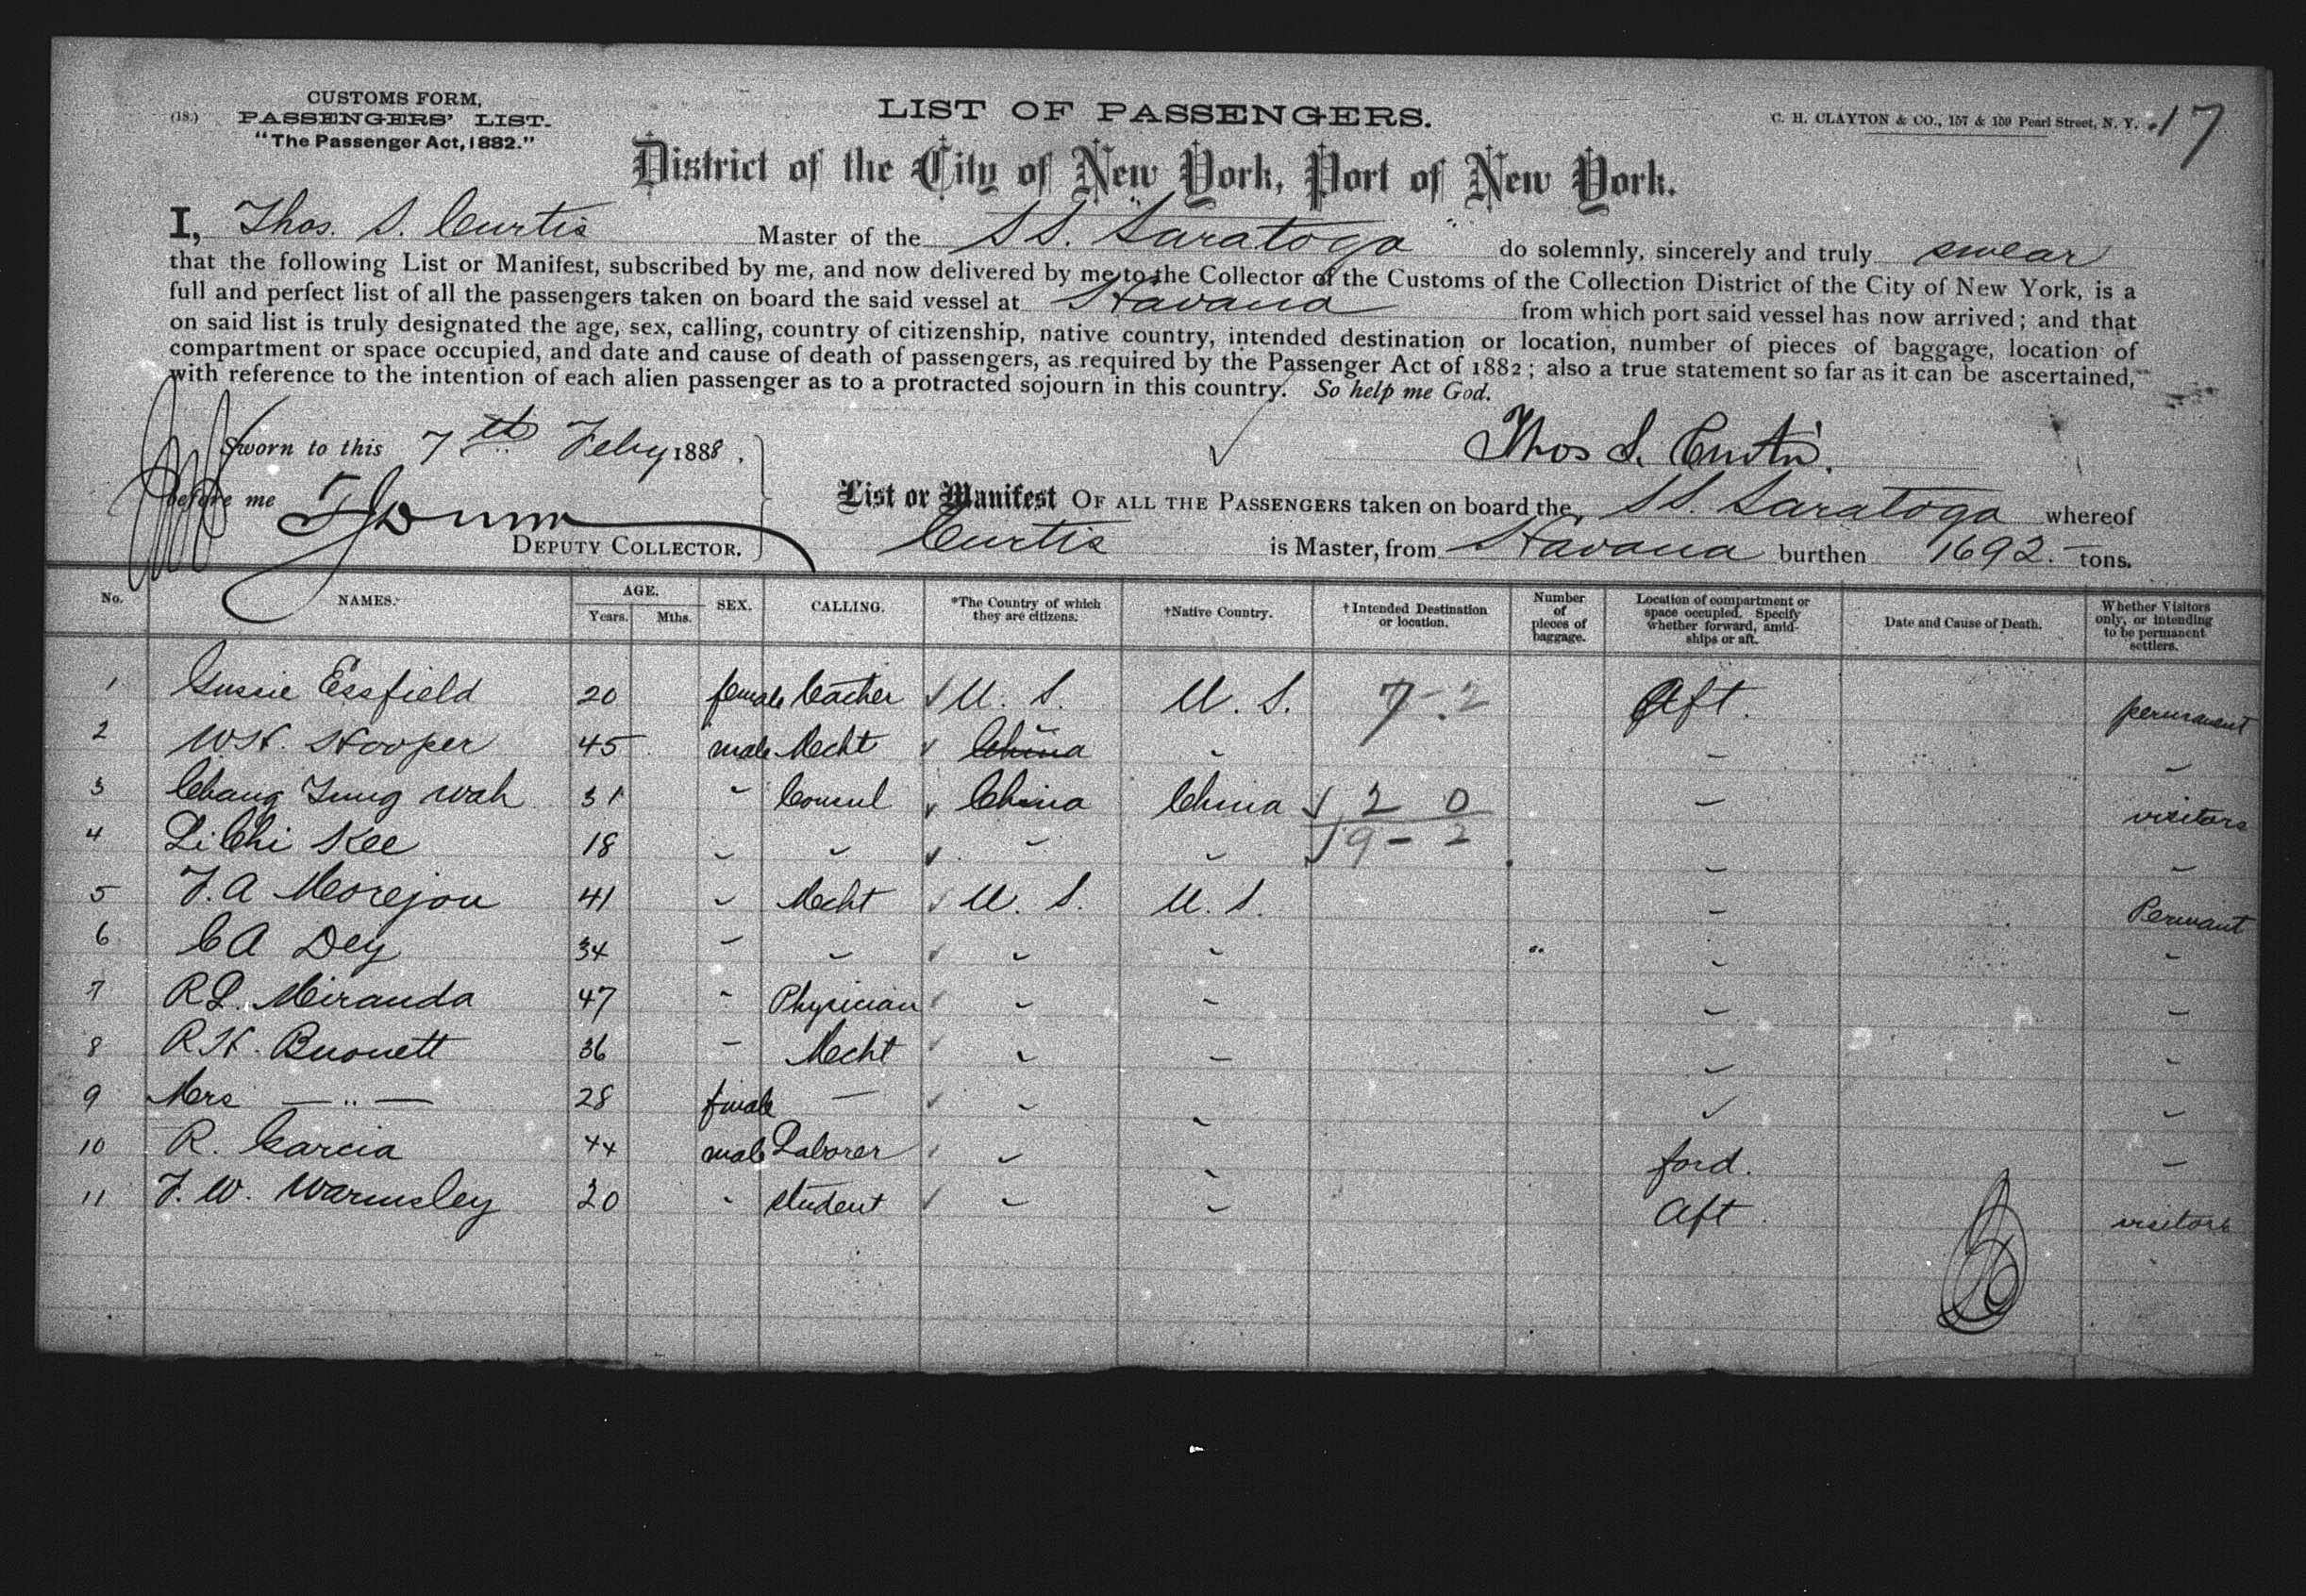 CUSTOMS FORM,
(18.) PASSENGERS' LIST.
"The Passenger Act, 1882."
LIST OF PASSENGERS.
C. H. CLAYTON & CO., 157 & 159 Pearl Street, N. Y.
17
District of the City of New York, Port of New York.
I, Thos. S. Curtis Master of the SS. "Saratoga" do solemnly, sincerely and truly swear
that the following List or Manifest, subscribed by me, and now delivered by me to the Collector of the Customs of the Collection District of the City of New York, is a
full and perfect list of all the passengers taken on board the said vessel at Havana from which port said vessel has now arrived; and that
on said list is truly designated the age, sex, calling, country of citizenship, native country, intended destination or location, number of pieces of baggage, location of
compartment or space occupied, and date and cause of death of passengers, as required by the Passenger Act of 1882; also a true statement so far as it can be ascertained,
with reference to the intention of each alien passenger as to a protracted sojourn in this country. So help me God.
Sworn to this 7th Feby 1888.
Thos S. Curtis.
before me
DEPUTY COLLECTOR.
List or Manifest OF ALL THE PASSENGERS taken on board the SS. Saratoga whereof
Curtis is Master, from Havana burthen 1692. tons.
No. NAMES. AGE. Years. Mths. SEX. CALLING. *The Country of which they are citizens. †Native Country. †Intended Destination or location. Number of pieces of baggage. Location of compartment or space occupied. Specify whether forward, amidships or aft. Date and Cause of Death. Whether Visitors only, or intending to be permanent settlers.
1 Gussie Essfield 20 female teacher ✓ U. S. U. S. 7-2 Aft. permanent
2 W H. Hooper 45 male Mecht ✓ China " " "
3 Chang Tung Wah 31 " Consul ✓ China China ✓ 2 0 " visitors
4 Li Chi Kee 18 " " ✓ " " 19-2 " "
5 F. A Morejon 41 " Mecht ✓ U. S. U. S. " Permant
6 C A Dey 34 " " ✓ " " " "
7 R L. Miranda 47 " Physician ✓ " " " "
8 R H. Buonett 36 " Mecht ✓ " " " "
9 Mrs — " — 28 female — ✓ " " " "
10 R. Garcia 44 male Laborer ✓ " " ford. "
11 F. W. Warmsley 20 " student ✓ " " Aft. visitors